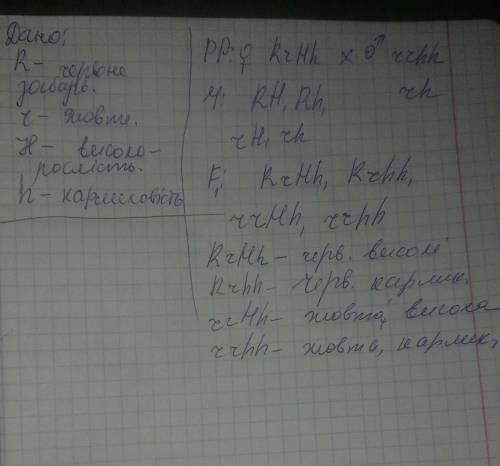 Дано:
R - червоне
забарв.
r - жовте.
H - високо-
рослість.
h - карликовість
PP: ♀ RrHh x ♂ rrhh
У: RH, Rh, rh
rH, rh
F₁: RrHh, Rrhh,
rrHh, rrhh
RrHh - черв. високі
Rrhh - черв. карлик.
rrHh - жовта, висока
rrhh - жовта, карлик,